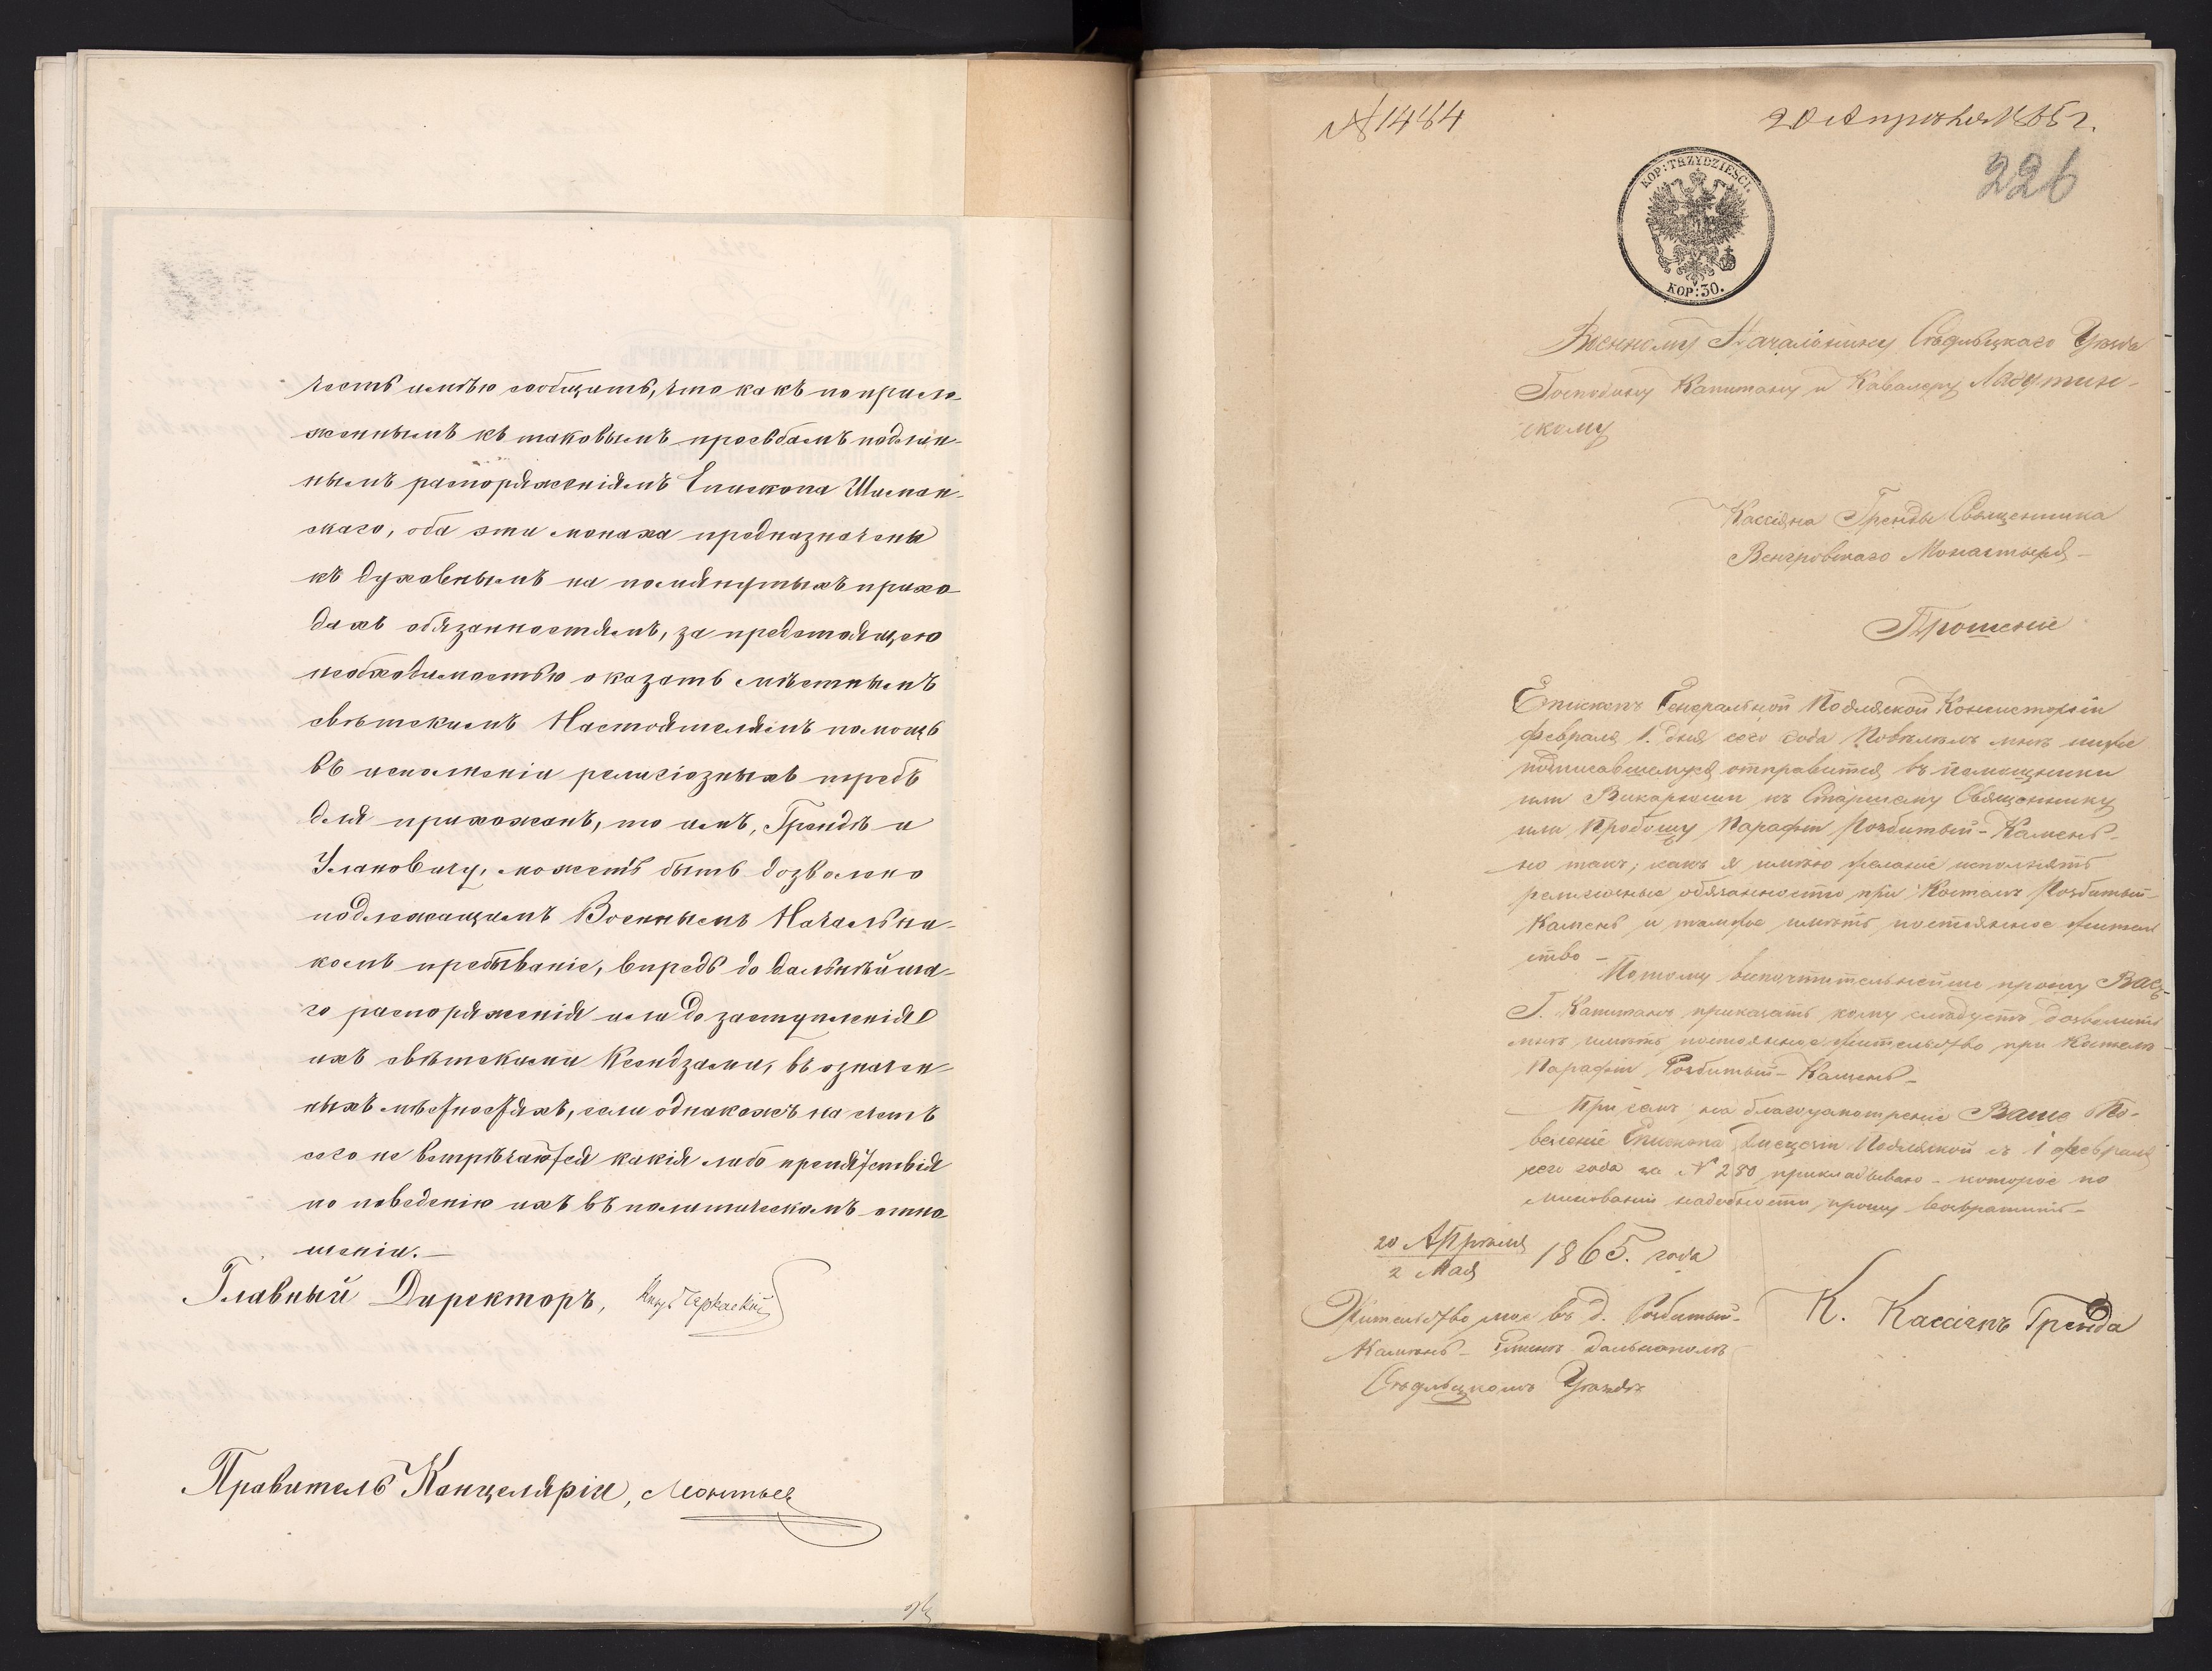 честь имѣю сообщить, что какъ по прило-
женнымъ къ таковымъ просьбамъ подлин-
нымъ распоряженіямъ Епископа Шиман-
скаго, оба эти монаха предназначены
къ духовнымъ на помянутыхъ прихо
дахъ обязанностямъ, за предстоящею
необходимостью оказать мѣстнымъ
свѣтскимъ Настоятелямъ помощь
въ исполненіи религіозныхъ требъ
для прихожанъ, то имъ, Грендѣ и
Улановичу, можетъ быть дозволено
подлежащимъ Военнымъ Начальни-
комъ пребываніе, впредь до дальнѣйша-
го распоряженія или до заступленія
ихъ свѣтскими Ксендзами, въ означен
ныхъ мѣстностяхъ, если однакожъ на счетъ
сего не встрѣчаются какія либо препятствія
по поведенію ихъ въ политическомъ отно
шеніи.—
Главный Директоръ, Князь Черкаскій
Правитель Канцеляріи, Леонтьев
№ 1484
20 Апрѣля 1865 г.
226
KOP: TRZYDZIEŚCI.
KOP: 30.
Военному Начальнику Сѣдлецкаго Уѣзда
Господину Капитану и Кавалеру Лагутин-
скому
Кассіяна Гренды Священника
Венгровскаго Монастыря —
Прошеніе
Епископъ Генеральной Подляской Консисторіи
февраля 1. дня сего года Повелѣлъ мнѣ ниже
подписавшемуся отправится въ помощники
или Викарюши къ Старшему Священнику
или Пробощу Парафіи Розбитый-Камень-
но такъ, какъ я имѣю желаніе исполнять
религіозные обязанности при Костелѣ Розбитый-
Камень и тамже имѣть постоянное житель
ство —
Потому всепочтительнейше прошу Васъ
Г. Капитанъ приказать кому слѣдуетъ дозволить
мнѣ имѣть постоянное жительство при Костелѣ
Парафіи Розбитый-Камень —
При семъ на благоусмотреніе Ваше По-
веленіе Епископа Диецезіи Подляской съ 1 февраля
сего года за № 280 прикладываю - которое по
миновании надобности прошу возвратить —
20 Апрѣля
2 Мая
1865. года
Жительство мое въ д. Розбитый-
Камень - Гминѣ
Сѣдлецкомъ Уѣздѣ
К. Кассіянъ Гренда